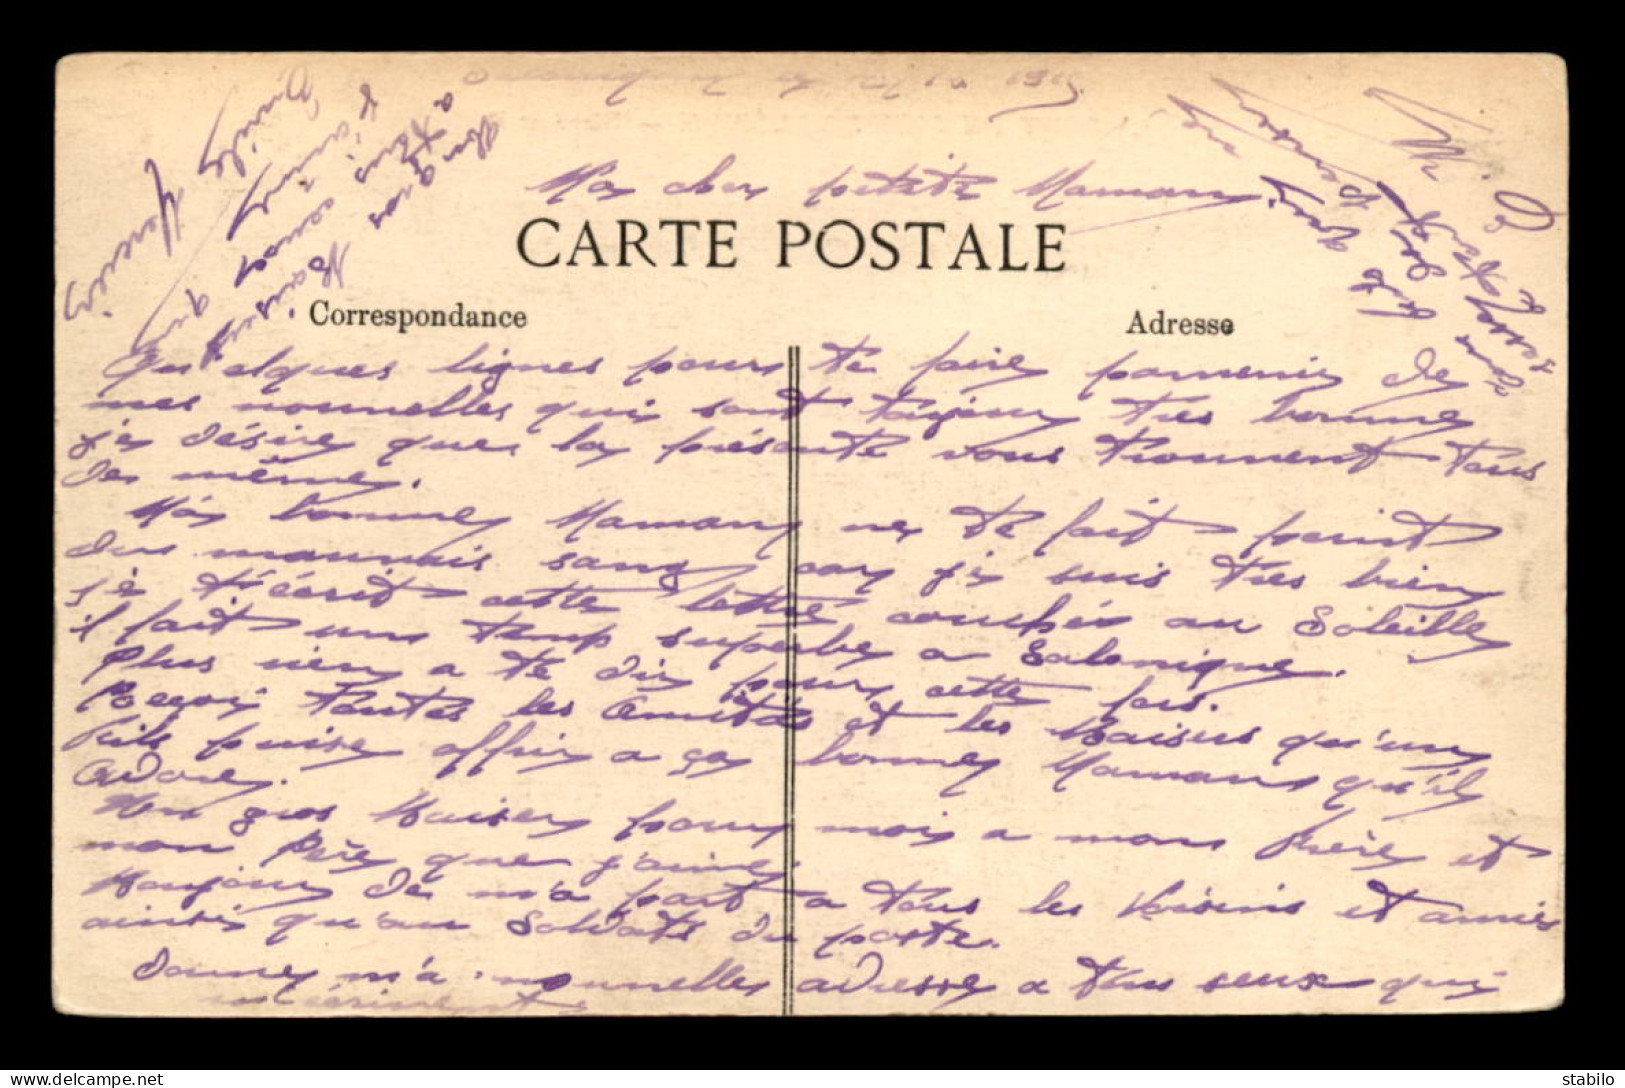 Salonique le 1915
Ma cher petite Maman
CARTE POSTALE
Correspondance
Adresse
Quelques lignes pour te faire parvenir de
mes nouvelles qui sont toujour tres bonne
je désire que la présente vous trouvent tous
de même.
Ma bonne Maman ne te fait point
du mauvais sang car je suis tres bien
je t'écrit cette lettre couché au Soleille
il fait un temp superbe a Salonique.
Plus rien a te dir pour cette fois.
Reçoi toutes les Amitiés et les Baisers qu'un
Fils puise offrir a ça bonne Maman qu'il
Adore.
Un gros Baiser pour moi a mon Frère et
mon Père que j'aime.
Bonjour de m'a part a tous les Voisins et amis
ainsi qu'au Soldats du poste.
Donne m'a nouvelle adresse a tous ceux qui
m'écrivent
Un gros
Baiser
a tous
Emile